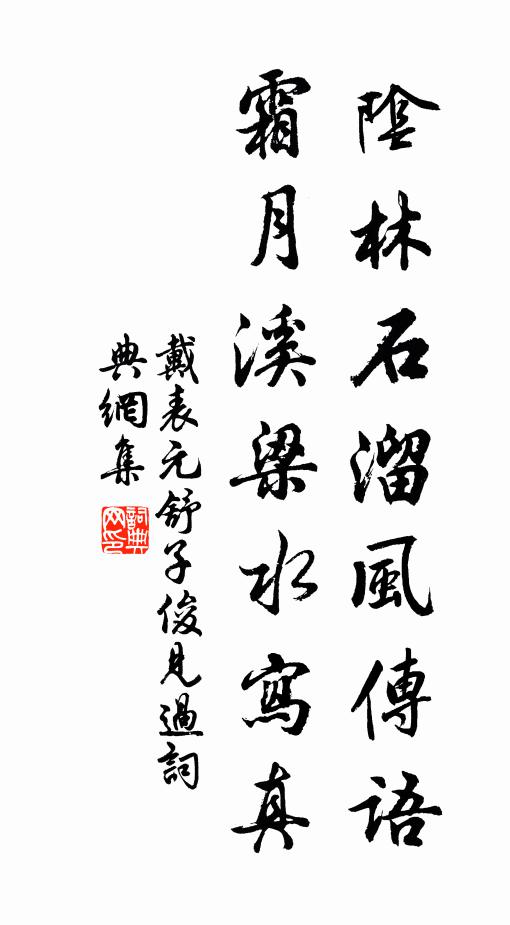 陰林石溜風傳語
霜月溪梁水寫真
戴表元舒子俊見過詞
典網集
詞典
网印